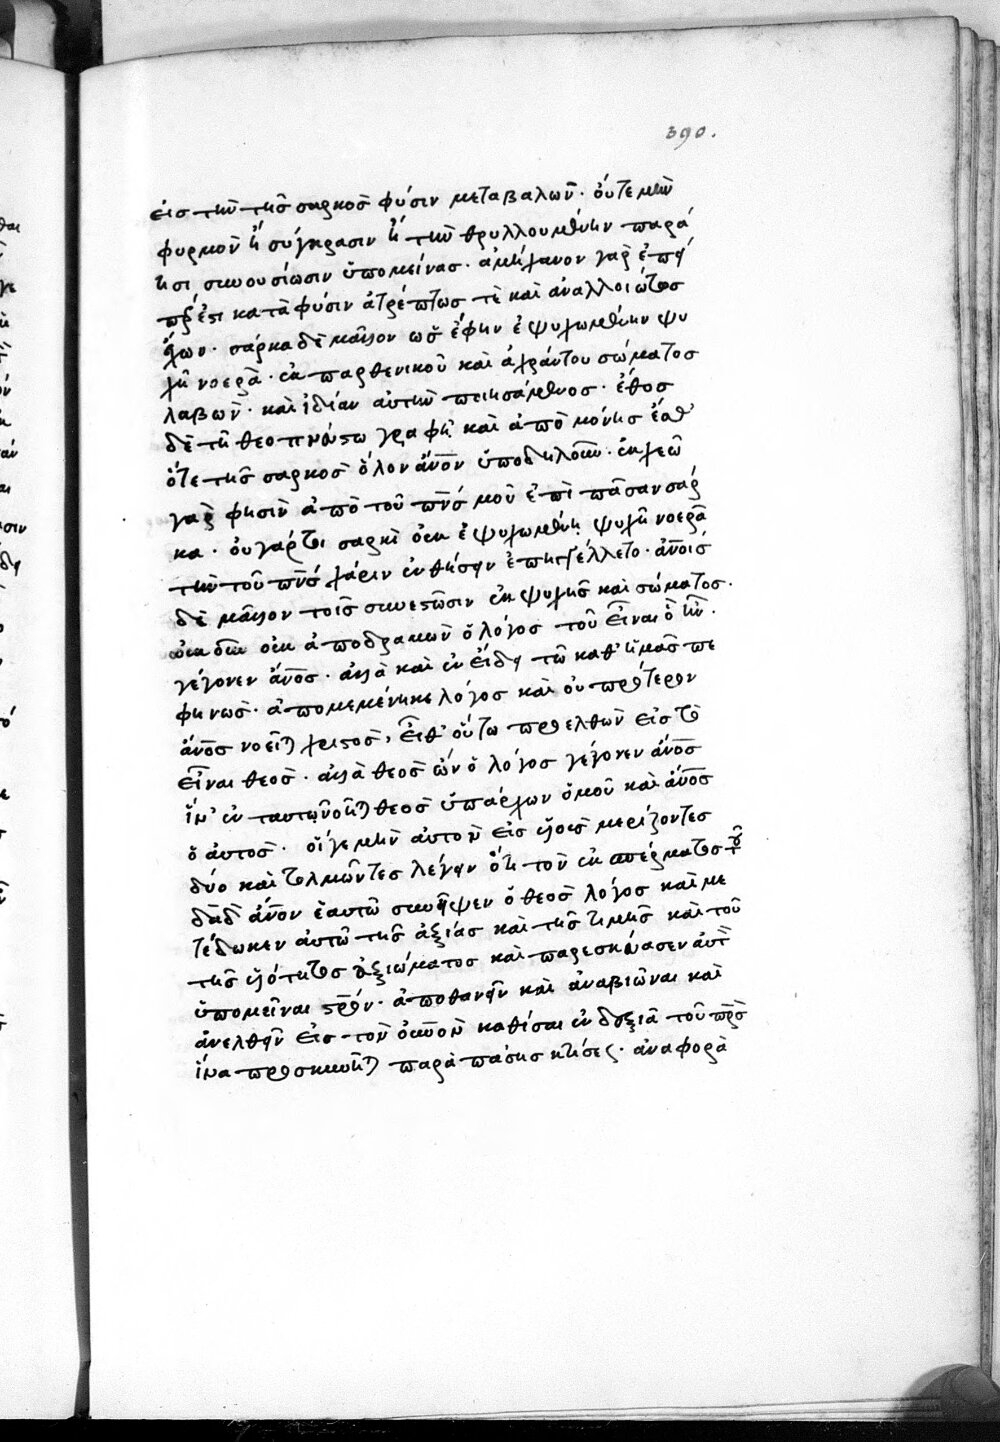 390.
εἰς τὴν τῆς σαρκὸς φύσιν μεταβαλών· οὔτε μὴν
φυρμὸν ἢ σύγκρασιν ἢ τὴν θρυλλουμένην παρά
τισι συνουσίωσιν ὑπομείνας· ἀμήχανον γὰρ ἐπεί
πέρ ἐστι κατὰ φύσιν ἀτρέπτως τὲ καὶ ἀναλλοιώτως
ἔχων· σάρκα δὲ μᾶλλον ὡς ἔφην ἐψυχωμένην ψυ
χῇ νοερᾷ· ἐκ παρθενικοῦ καὶ ἀχράντου σώματος
λαβὼν· καὶ ἰδίαν αὐτὴν ποιησάμενος· ἔθος
δὲ τῇ θεοπνεύστω γραφῇ καὶ ἀπὸ μόνης ἔσθ'
ὅτε τῆς σαρκὸς ὅλον ἄνον ὑποδηλοῦν· ἐκχεῶ
γὰρ φησὶν ἀπὸ τοῦ πνς μοῦ ἐπὶ πᾶσαν σάρ
κα· οὐ γάρ τοι σαρκὶ οὐκ ἐψυχωμένῃ ψυχῇ νοερᾷ
τὴν τοῦ πνς χάριν ἐνθήσειν ἐπηγγέλλετο· ἀνοις
δὲ μᾶλλον τοῖς συνεστῶσιν ἐκ ψυχῆς καὶ σώματος·
οὐκοῦν οὐκ ἀποδραμὼν ὁ λόγος τοῦ εἶναι ὃ ἦν·
γέγονεν ἄνος· ἀλλὰ καὶ ἐν εἴδει τῶ καθ' ἡμᾶς πε
φηνὼς· ἀπομεμένηκε λόγος καὶ οὐ πρότερον
ἄνος νοεῖται χριστὸς, εἶθ' οὕτω προελθὼν εἰς τὸ
εἶναι θεὸς· ἀλλὰ θεὸς ὢν ὁ λόγος γέγονεν ἄνος
ἵν' ἐν ταυτῷ νοῆται θεὸς ὑπάρχων ὁμοῦ καὶ ἄνος
ὁ αὐτὸς· οἵ γε μὴν αὐτὸν εἰς υἱοὺς μερίζοντες
δύο καὶ τολμῶντες λέγειν ὅτι τὸν ἐκ σπέρματος τοῦ
δαδ ἄνον ἑαυτῶ συνῆψεν ὁ θεὸς λόγος καὶ με
τέδωκεν αὐτῶ τῆς ἀξίας καὶ τῆς τιμῆς καὶ τοῦ
τῆς υἱότητος ἀξιώματος καὶ παρεσκεύασεν αὐτὸν
ὑπομεῖναι στρόν· ἀποθανεῖν καὶ ἀναβιῶναι καὶ
ἀνελθεῖν εἰς τὸν οὐνον καθίσαι ἐν δεξιᾷ τοῦ πρς
ἵνα προσκυνῆται παρὰ πάσης κτίσεως· ἀναφορᾷ